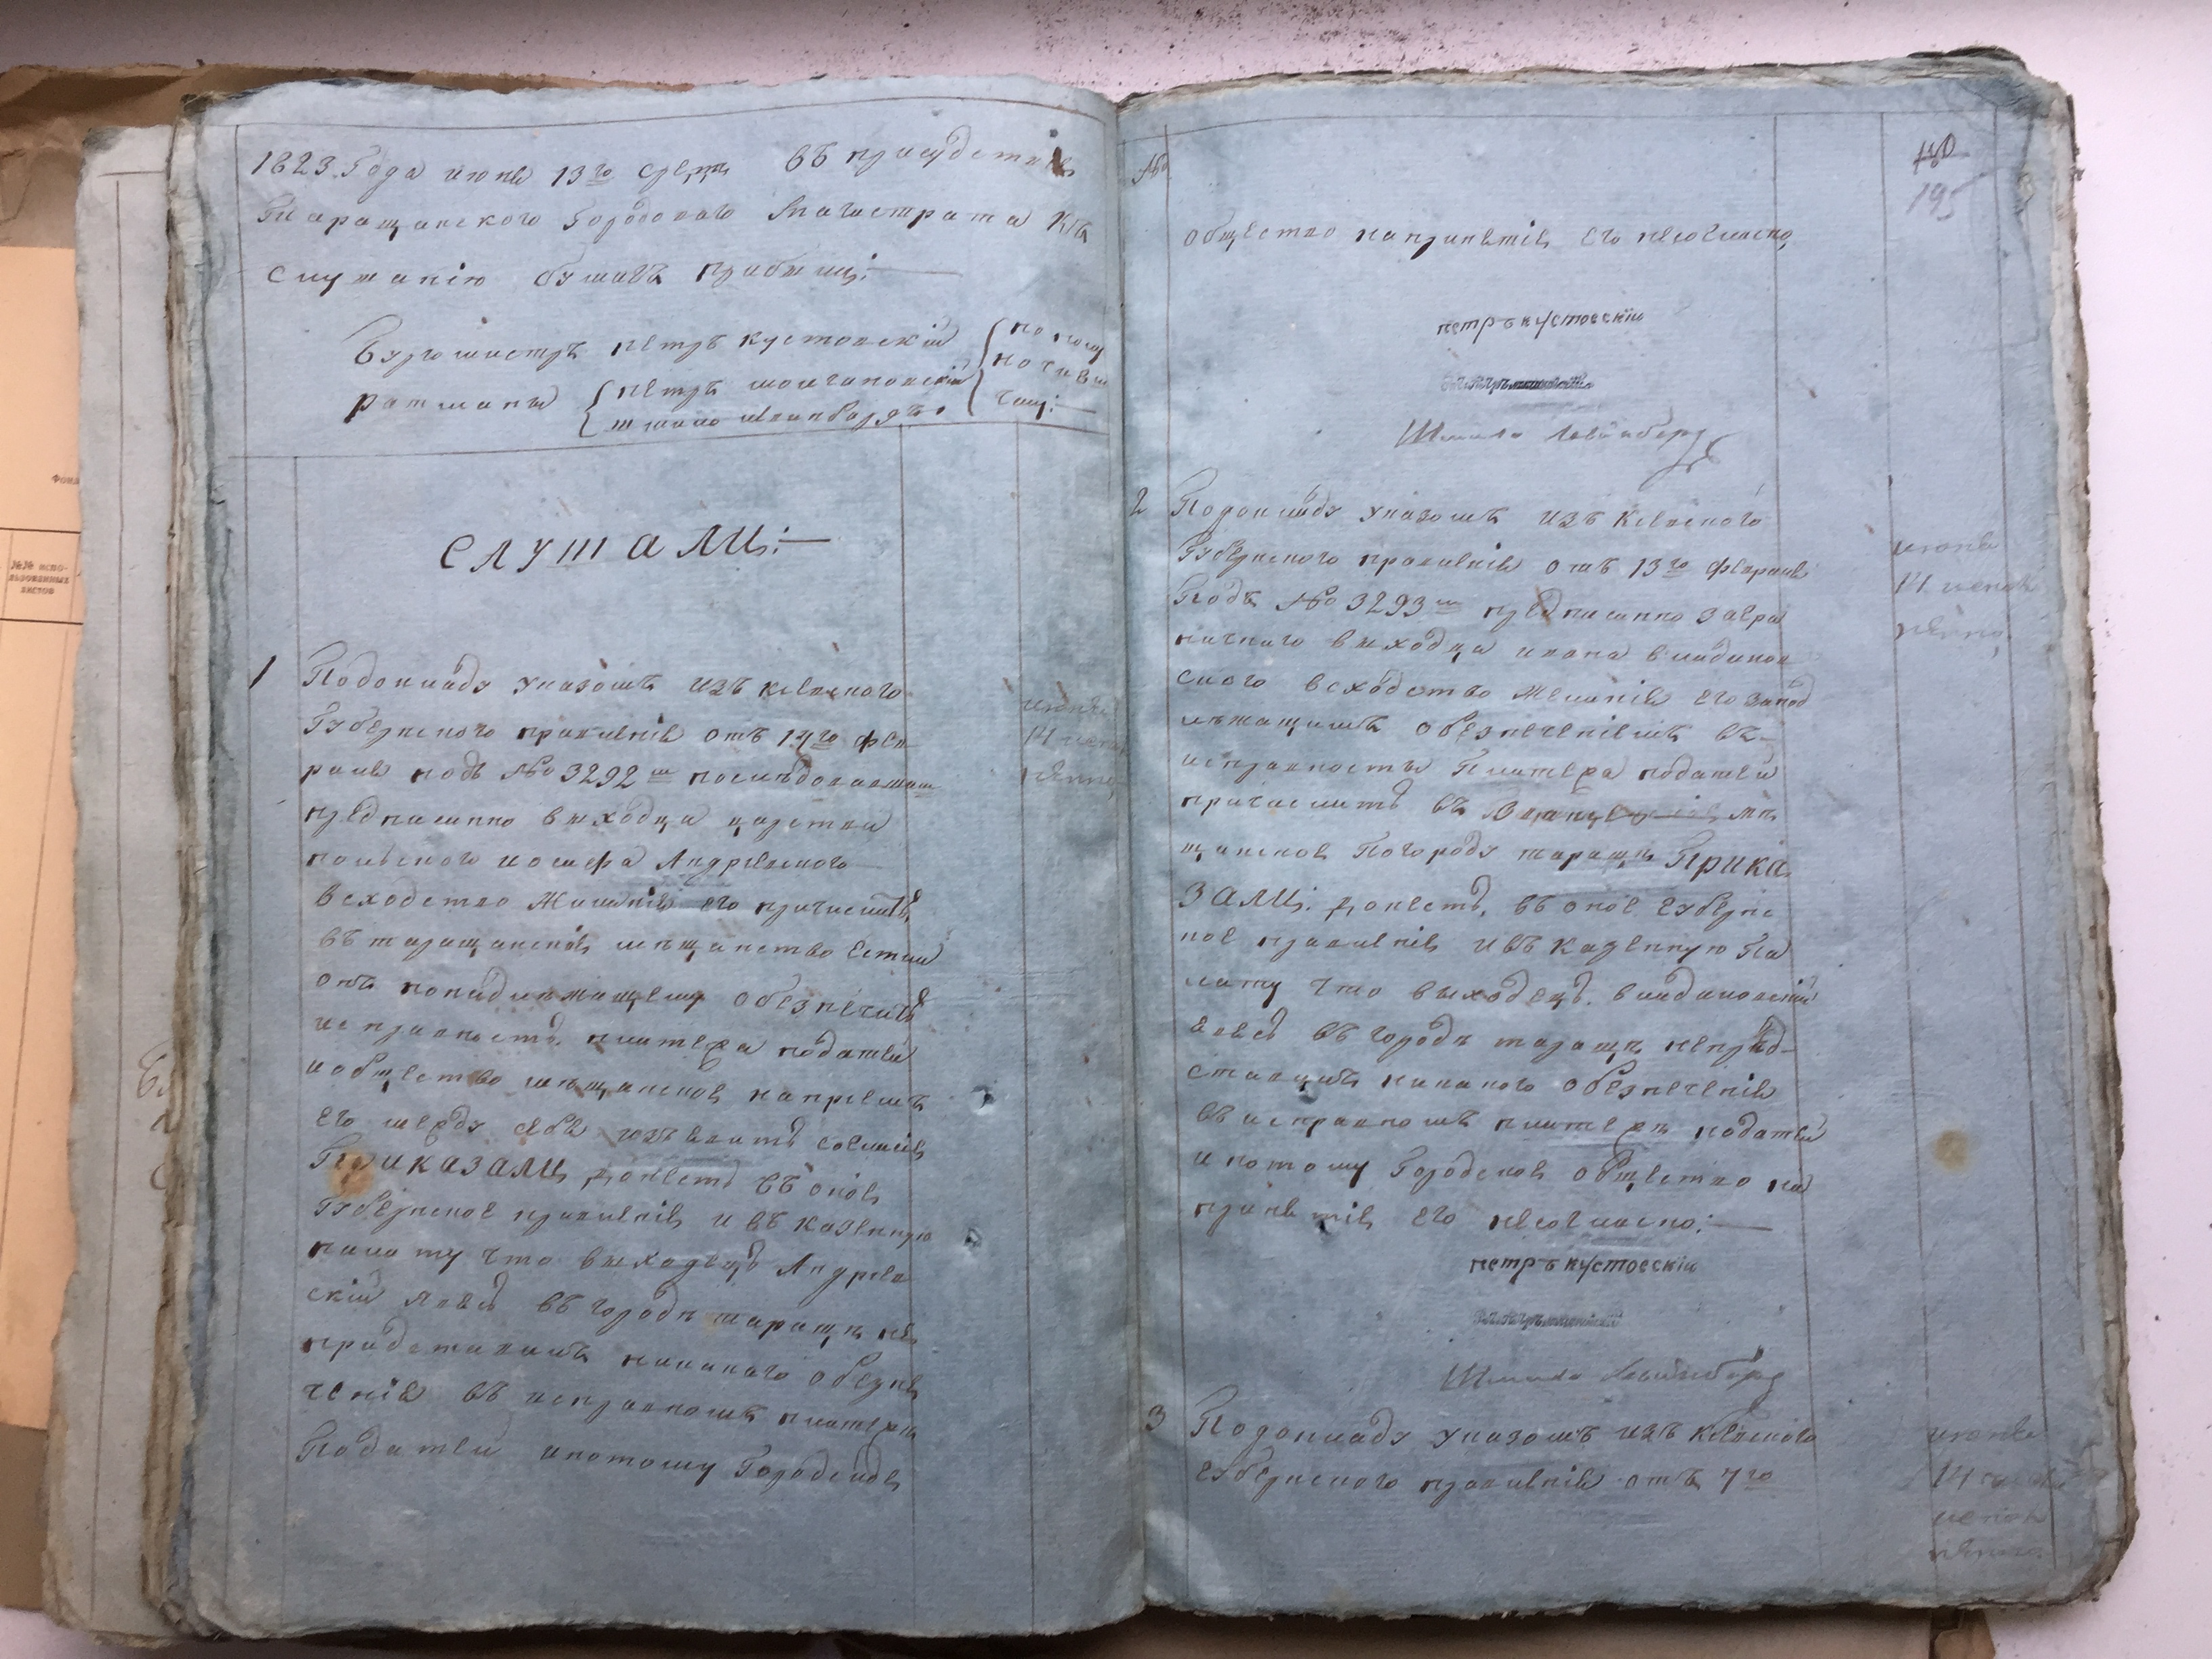 1823 Года июня 13го въ присудствие
Таращанского Городоваго Магистрата Къ
слушанію бумагъ прибыли:
Бургомистръ петръ кустовскій
ратманы петръ молчановскій
шмило левинбергъ
пополу
ночи въ
часу:
СЛУШАЛИ:
1 Подокладу указомъ изъ киевского
Губернского правленія отъ 14го фев
раля подъ № 3292м последовавшим
предписанно выходца царства
польского иосифа Андриевского
всходство желанія его причислить
въ таращанское мещанство Естли
онъ понадлежащему обезпечить
исправность платежа податей
и общество мещанское напреемъ
его между себя изъявитъ согласіе
ПрИКАЗАЛИ донесть въ оное
Губернское правленіе и въ казенную
палату что выходецъ Андриев
скій явясь въ городъ таращу не
придставилъ никакого обезпе
ченія въ исправномъ платеже
Податей ипотому Городское
№
150
195
общество напринятіе его несогласно,
петръ кустовскій
Шмило Левинберг
2 Подокладу указомъ изъ Киевского
Губернского правленія отъ 13го февраля
Подъ № 3293м предписанно загра
ничнаго выходца ивана владиков
ского всходство желанія его занад
лежащимъ обезпеченіемъ въ
исправность Платежа податей
причислить въ ме
щанское Погороду таращи ПРИКА
ЗАЛИ: донесть, въ оное Губернс
кое правленіе ивъ казенную Па
лату что выходецъ владиковскій
явясь въ городъ таращу непред-
ставилъ никакого обезпеченія
въ исправномъ платеже податей
и потому Городское общество на
принятіе его несогласно:
петръ кустовскій
Шмило Левинберг
3 Подокладу указомъ изъ Киевского
Губернского правленія отъ 7го
июня
14 испол
нено,
июня
14 исполн
нено,
июня
14
исполн
нено